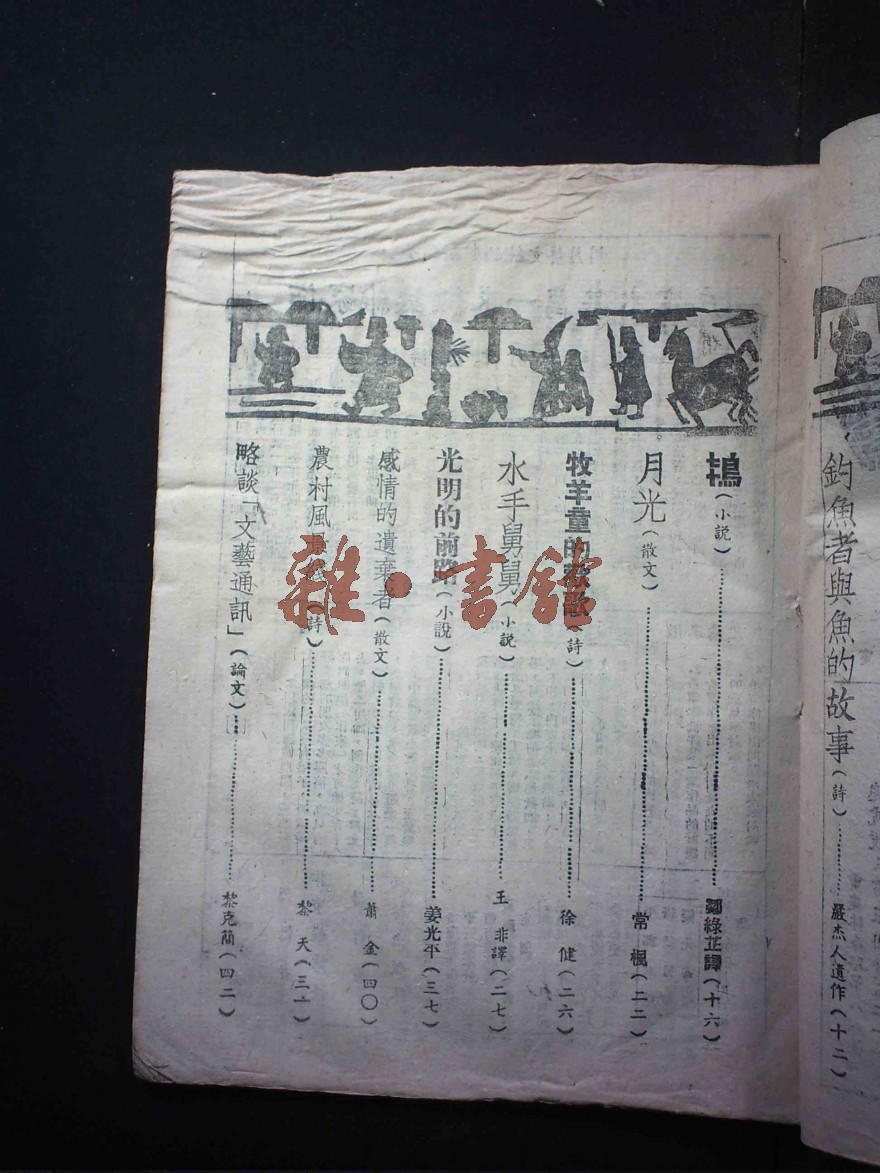 釣魚者與魚的故事(詩)…………嚴杰人遺作(十二)
鴇(小説)…………鄒綠芷譯(十六)
月光(散文)…………常楓(二二)
牧羊童的戀歌(詩)…………徐健(二六)
水手舅舅(小説)…………王非譯(二七)
光明的前路(小説)…………姜光平(三七)
感情的遺棄者(散文)…………蕭金(四〇)
農村風景線(詩)…………黎天(三一)
略談「文藝通訊」(論文)…………黎克簡(四二)
雜·書館